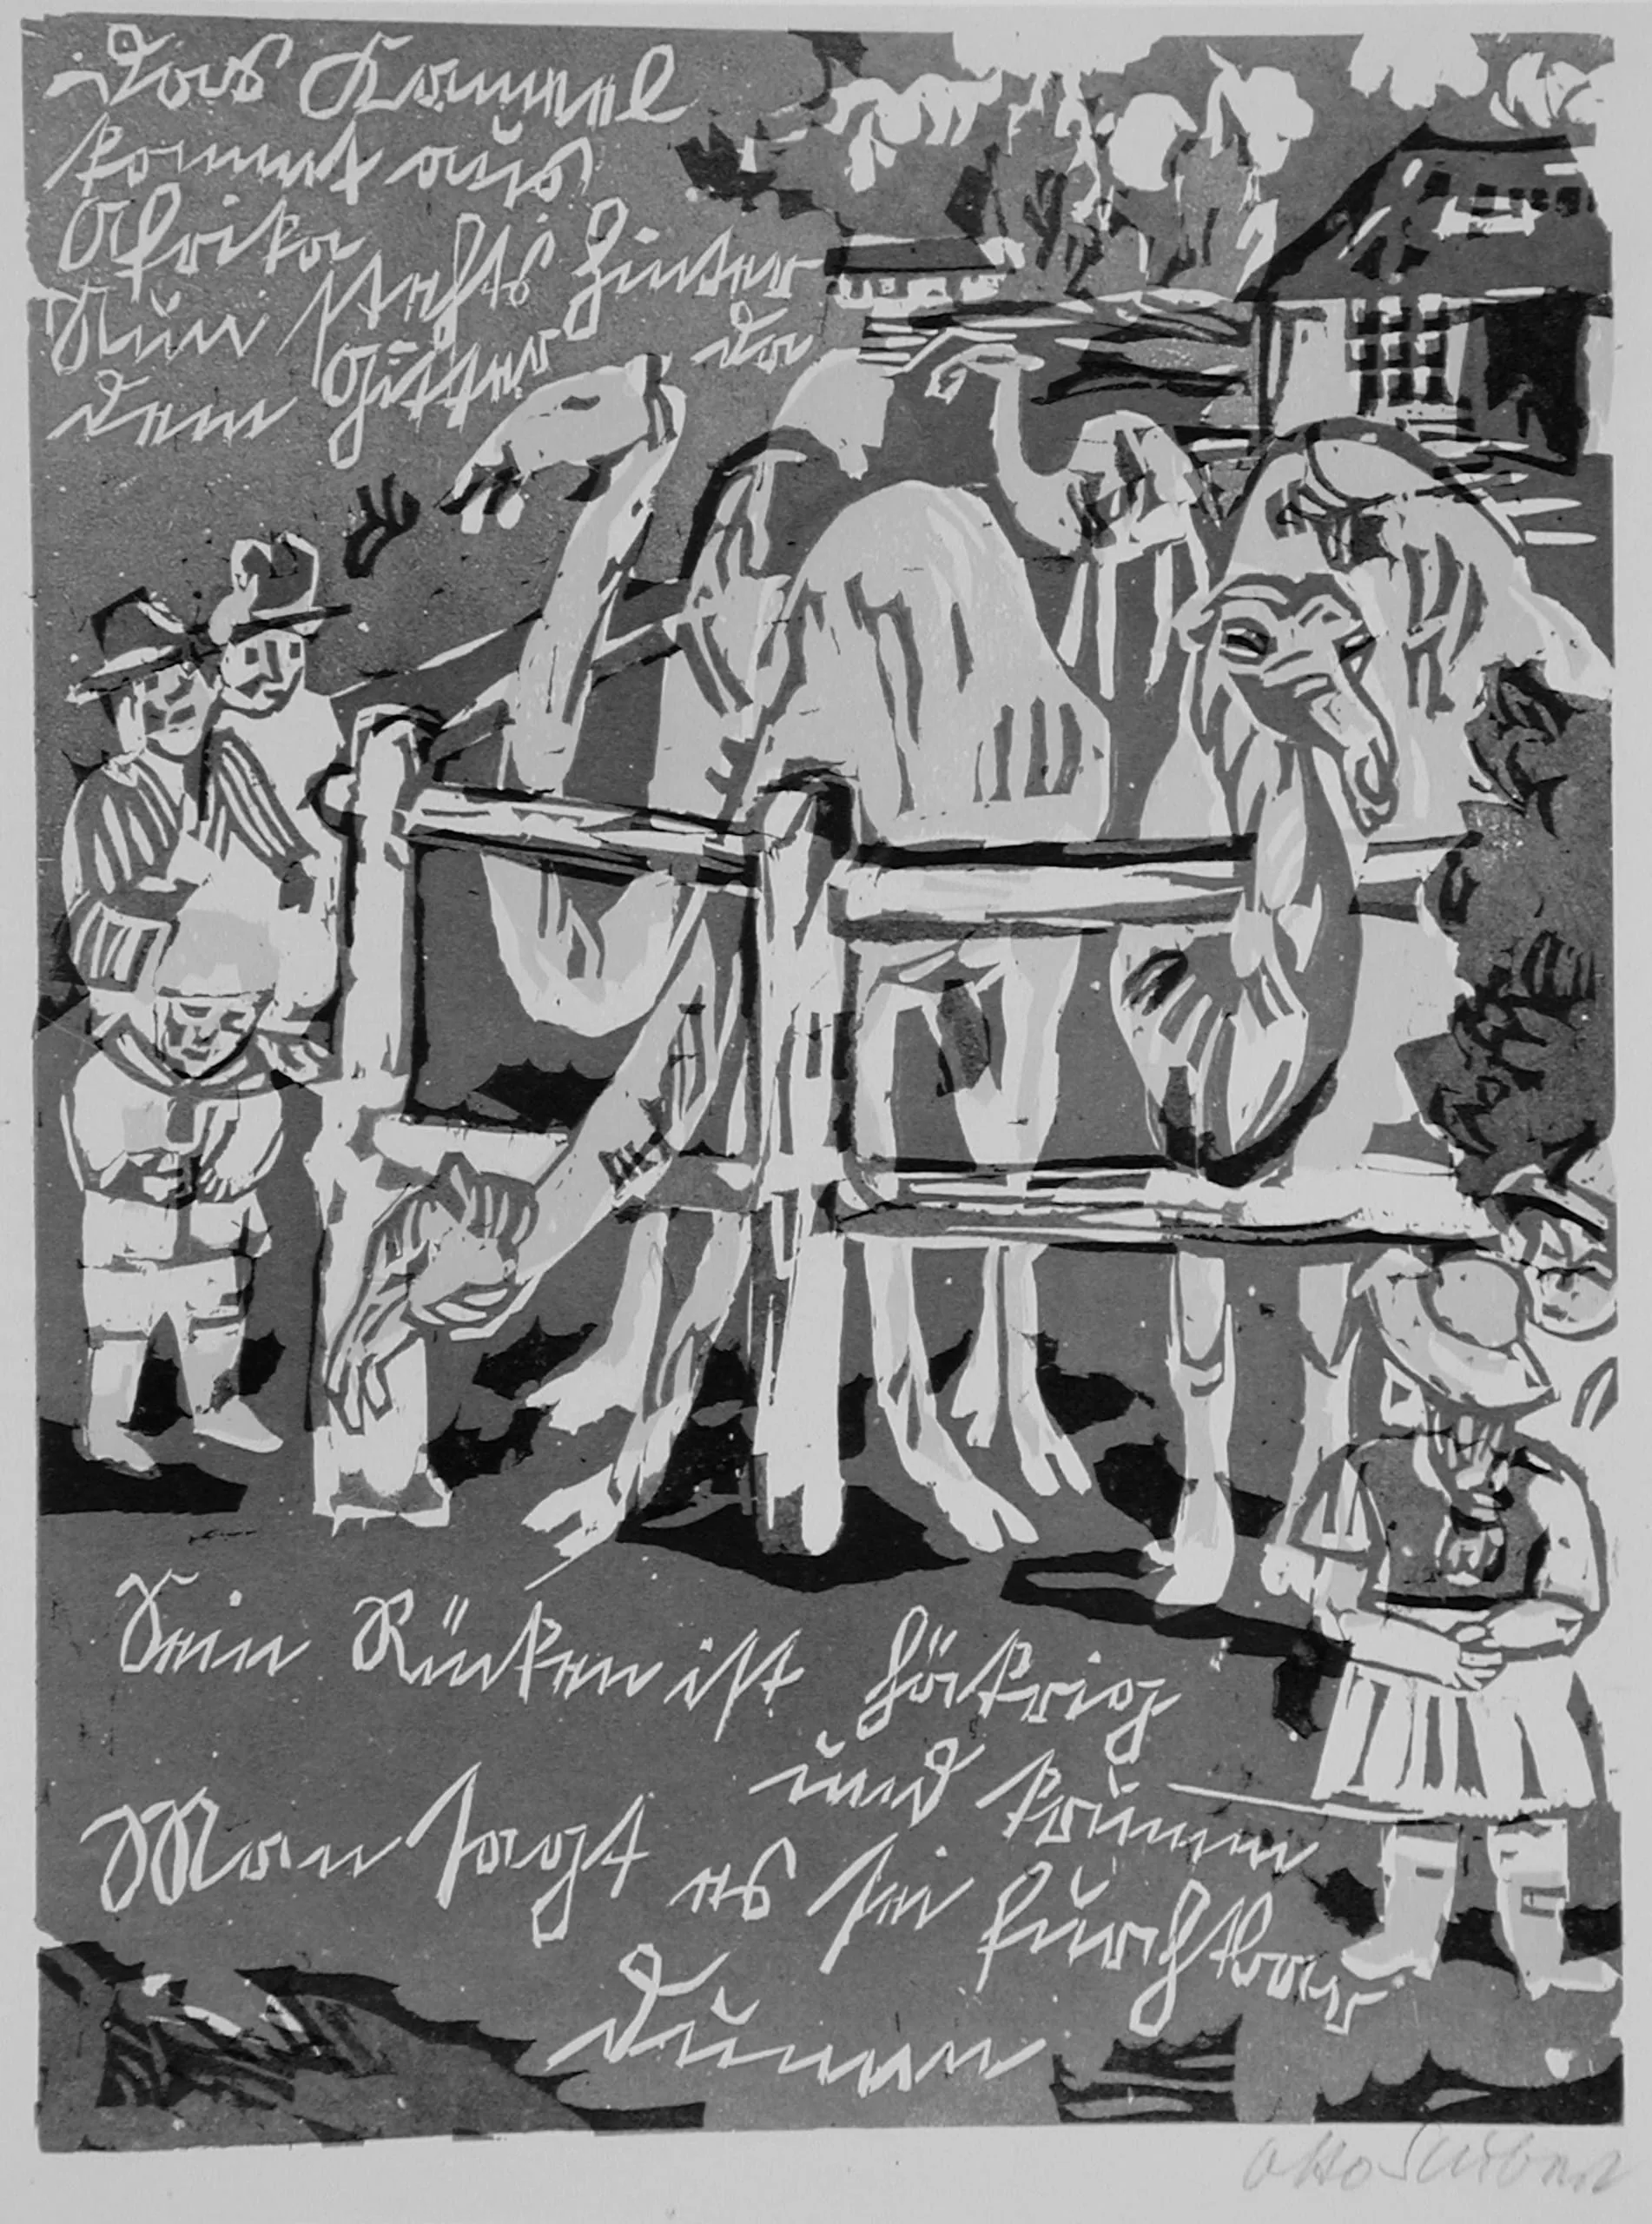 Das Kameel
kommt aus
Afrika
Nun steht's hinter
dem Gitter da
Sein Rücken ist höckrig
und krumm
Man sagt es sei furchtbar
dumm
Otto